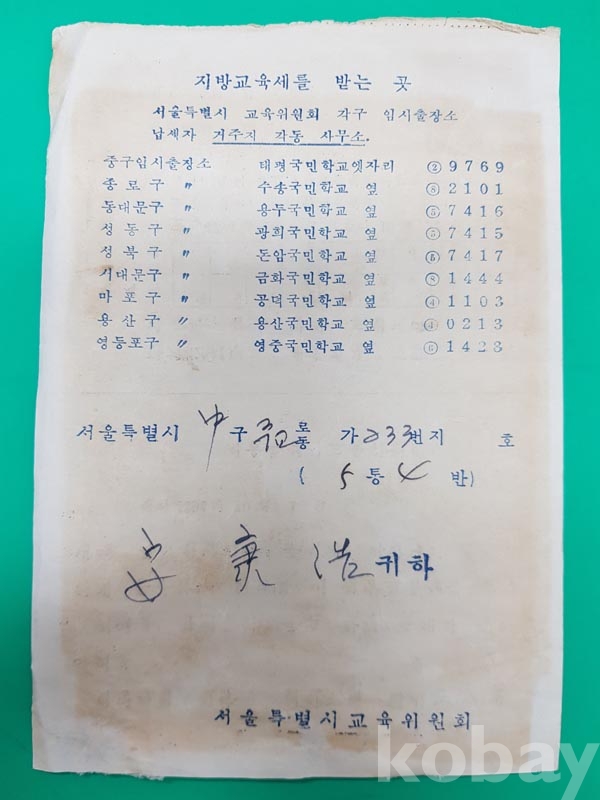 지방교육세를 받는 곳
서울특별시 교육위원회 각구 임시출장소
납세자 거주지 각동 사무소.
중구임시출장소 태평국민학교옛자리 ② 9769
종로구 〃 수송국민학교 옆 ⑧ 2101
동대문구 〃 용두국민학교 옆 ⑤ 7416
성동구 〃 광희국민학교 옆 ⑤ 7415
성북구 〃 돈암국민학교 옆 ⑤ 7417
서대문구 〃 금화국민학교 옆 ⑧ 1444
마포구 〃 공덕국민학교 옆 ④ 1103
용산구 〃 용산국민학교 옆 ④ 0213
영등포구 〃 영중국민학교 옆 ⑥ 1423
서울특별시 中구 주교 로동 가 233번지 호
( 5통 4반)
安 庚 浩 귀하
서울특별시교육위원회
kobay